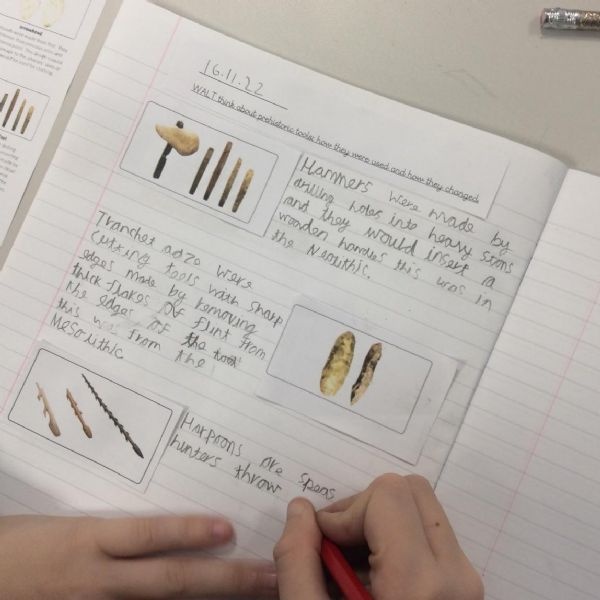 16.11.22
WALT think about prehistoric tools: how they were used and how they changed
Hammers were made by
drilling holes into heavy stons
and they would insert a
wooden handles this was in
the Neolithic.
Tranchet adze were
cutting tools with sharp
edges made by removing
thick flakes of flint from
the edges of the tool
this was from the
Mesolithic
Harpoons are speas
hunters throw